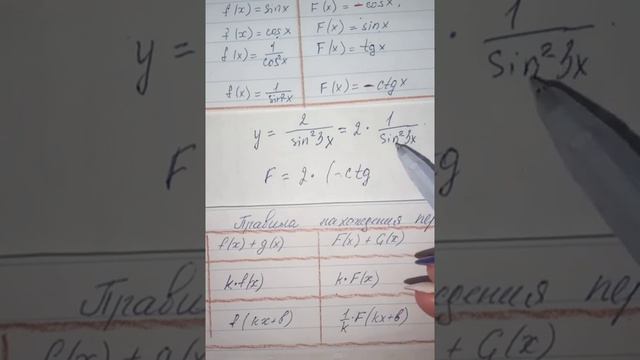 f(x) = sinx F(x) = -cosx.
f(x) = cosx F(x) = sinx
f(x) = 1/cos²x F(x) = tgx
f(x) = 1/sin²x F(x) = -ctgx
y = 2/sin²3x = 2 · 1/sin²3x
F = 2 · (-ctg
Правила нахождения пер
f(x) + g(x) F(x) + G(x)
k·f(x) k·F(x)
f(kx+b) 1/k·F(kx+b)